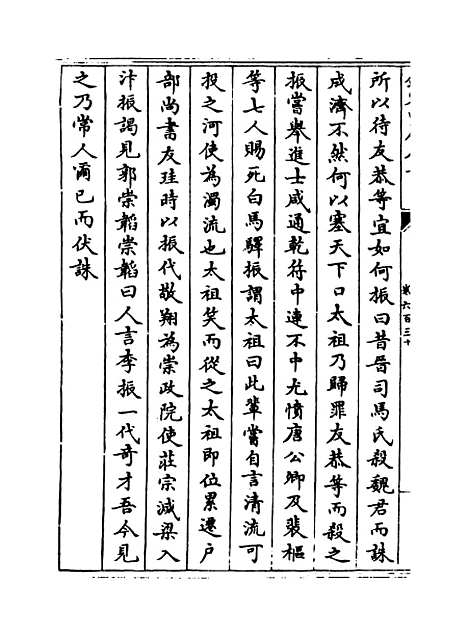 所以待友恭等宜如何振曰昔晉司馬氏殺魏君而誅
成濟不然何以塞天下口太祖乃歸罪友恭等而殺之
振嘗舉進士咸通乾符中連不中尤憤唐公卿及裴樞
等七人賜死白馬驛振謂太祖曰此輩嘗自言清流可
投之河使為濁流也太祖笑而從之太祖即位累遷户
部尚書友珪時以振代敬翔為崇政院使莊宗滅梁入
汴振謁見郭崇韜崇韜曰人言李振一代奇才吾今見
之乃常人爾已而伏誅
卷六百三十